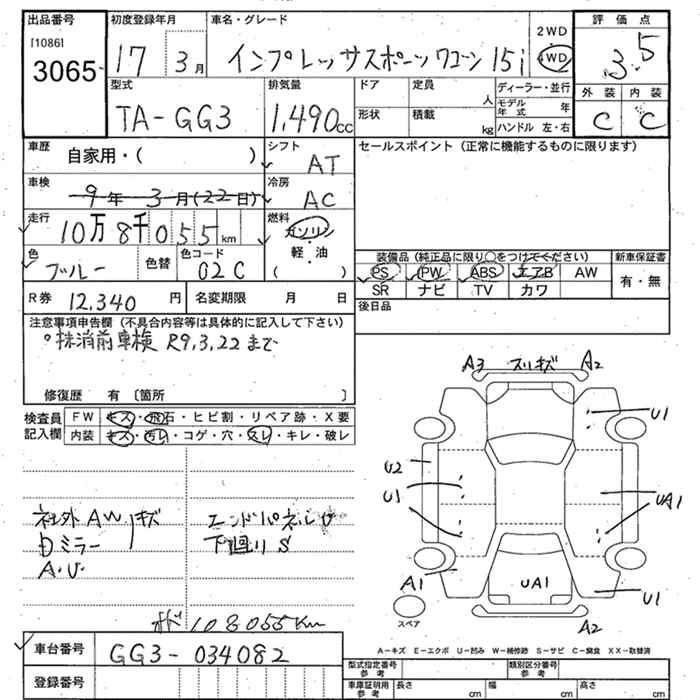 出品番号 初度登録年月 車名・グレード 評価点
[1086]
3065 17年 3月 インプレッサスポーツワゴン 15i 2WD 4WD 3.5
型式 排気量 ドア 定員 人 ディーラー・並行 外装 内装
TA-GG3 1,490cc 形状 積載 kg モデル年式 年 C C
ハンドル 左・右
車歴 自家用・( ) シフト AT セールスポイント (正常に機能するものに限ります)
車検 9年 3月(22日) 冷房 AC
走行 10万8千055km 燃料 ガソリン・軽・油 ( )
色 ブルー 色替 色コード 02C
装備品 (純正品に限り○をつけてください) 新車保証書
PS PW ABS エアB AW 有・無
SR ナビ TV カワ
R券 12,340円 名変期限 月 日 後日品
注意事項申告欄 (不具合内容等は具体的に記入して下さい)
抹消前車検 R9,3,22まで
修復歴 有 〔箇所 〕
検査員記入欄 FW キズ・飛石・ヒビ割・リペア跡・X要
内装 キズ・汚レ・コゲ・穴・スレ・キレ・破レ
A3 スリキズ A2
U1
U2
U1 UA1
社外AWキズ エンドパネルU
Dミラー〃 下廻りS
A.U.
A1 UA1 U1
スペア A2
オド 108055Km
A-キズ E-エクボ U-凹み W-補修跡 S-サビ C-腐食 XX-取替済
車台番号 GG3-034082
型式指定番号 参考 類別区分番号 参考
登録番号 車庫証明用参考 長さ cm 幅 cm 高さ cm